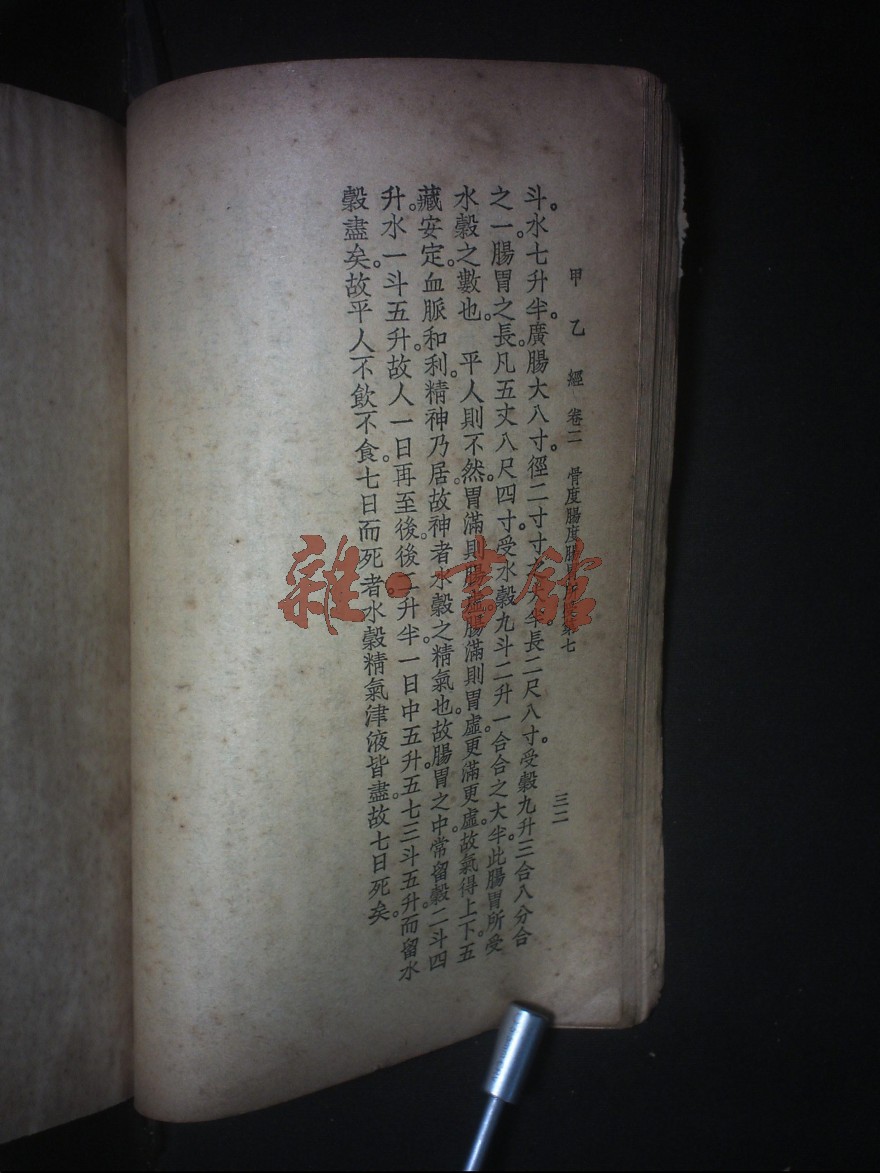 甲乙經 卷二 骨度腸度腸胃所受第七 三二
斗。水七升半。廣腸大八寸。徑二寸寸之大半長二尺八寸。受穀九升三合八分合
之一。腸胃之長。凡五丈八尺四寸。受水穀九斗二升一合合之大半。此腸胃所受
水穀之數也。平人則不然。胃滿則腸虛。腸滿則胃虛。更滿更虛。故氣得上下。五
藏安定。血脈和利。精神乃居。故神者水穀之精氣也。故腸胃之中。常留穀二斗四
升。水一斗五升。故人一日再至後。後二升半。一日中五升。五七三斗五升。而留水
穀盡矣。故平人不飲不食。七日而死者。水穀精氣津液皆盡。故七日死矣。
雜·書館